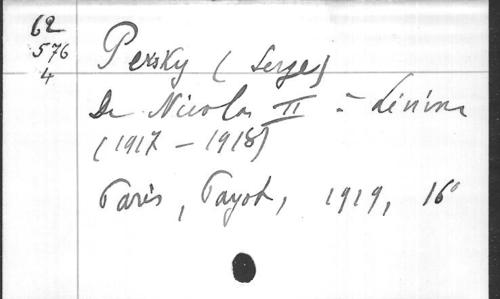 62
576
4
Persky (Serge)
De Nicolas II à Lénine
(1917 - 1918)
Paris, Payot, 1919, 16°